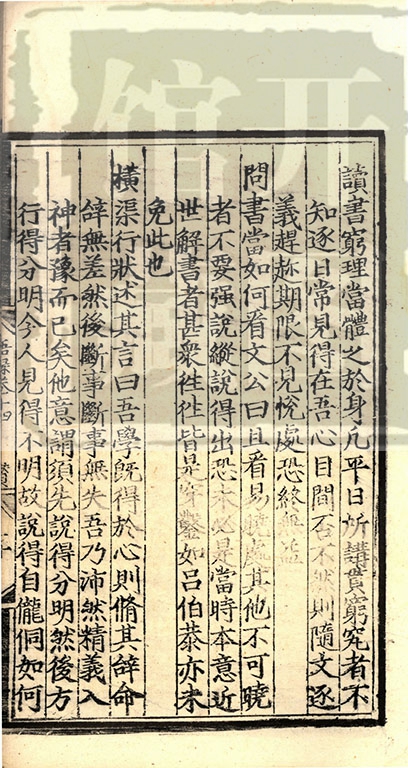 讀書窮理當體之於身凡平日所講貫窮究者不
知逐日常見得在吾心目間否不然則隨文逐
義趕赴期限不見悅處恐終無益
問書當如何看文公曰且看易曉處其他不可曉
者不要强說縱說得出恐未必是當時本意近
世解書者甚衆徃徃皆是穿鑿如吕伯恭亦未
免此也
橫渠行狀述其言曰吾學旣得於心則脩其辭命
辭無差然後斷事斷事無失吾乃沛然精義入
神者豫而已矣他意謂須先說得分明然後方
行得分明今人見得不明故說得自儱侗如何